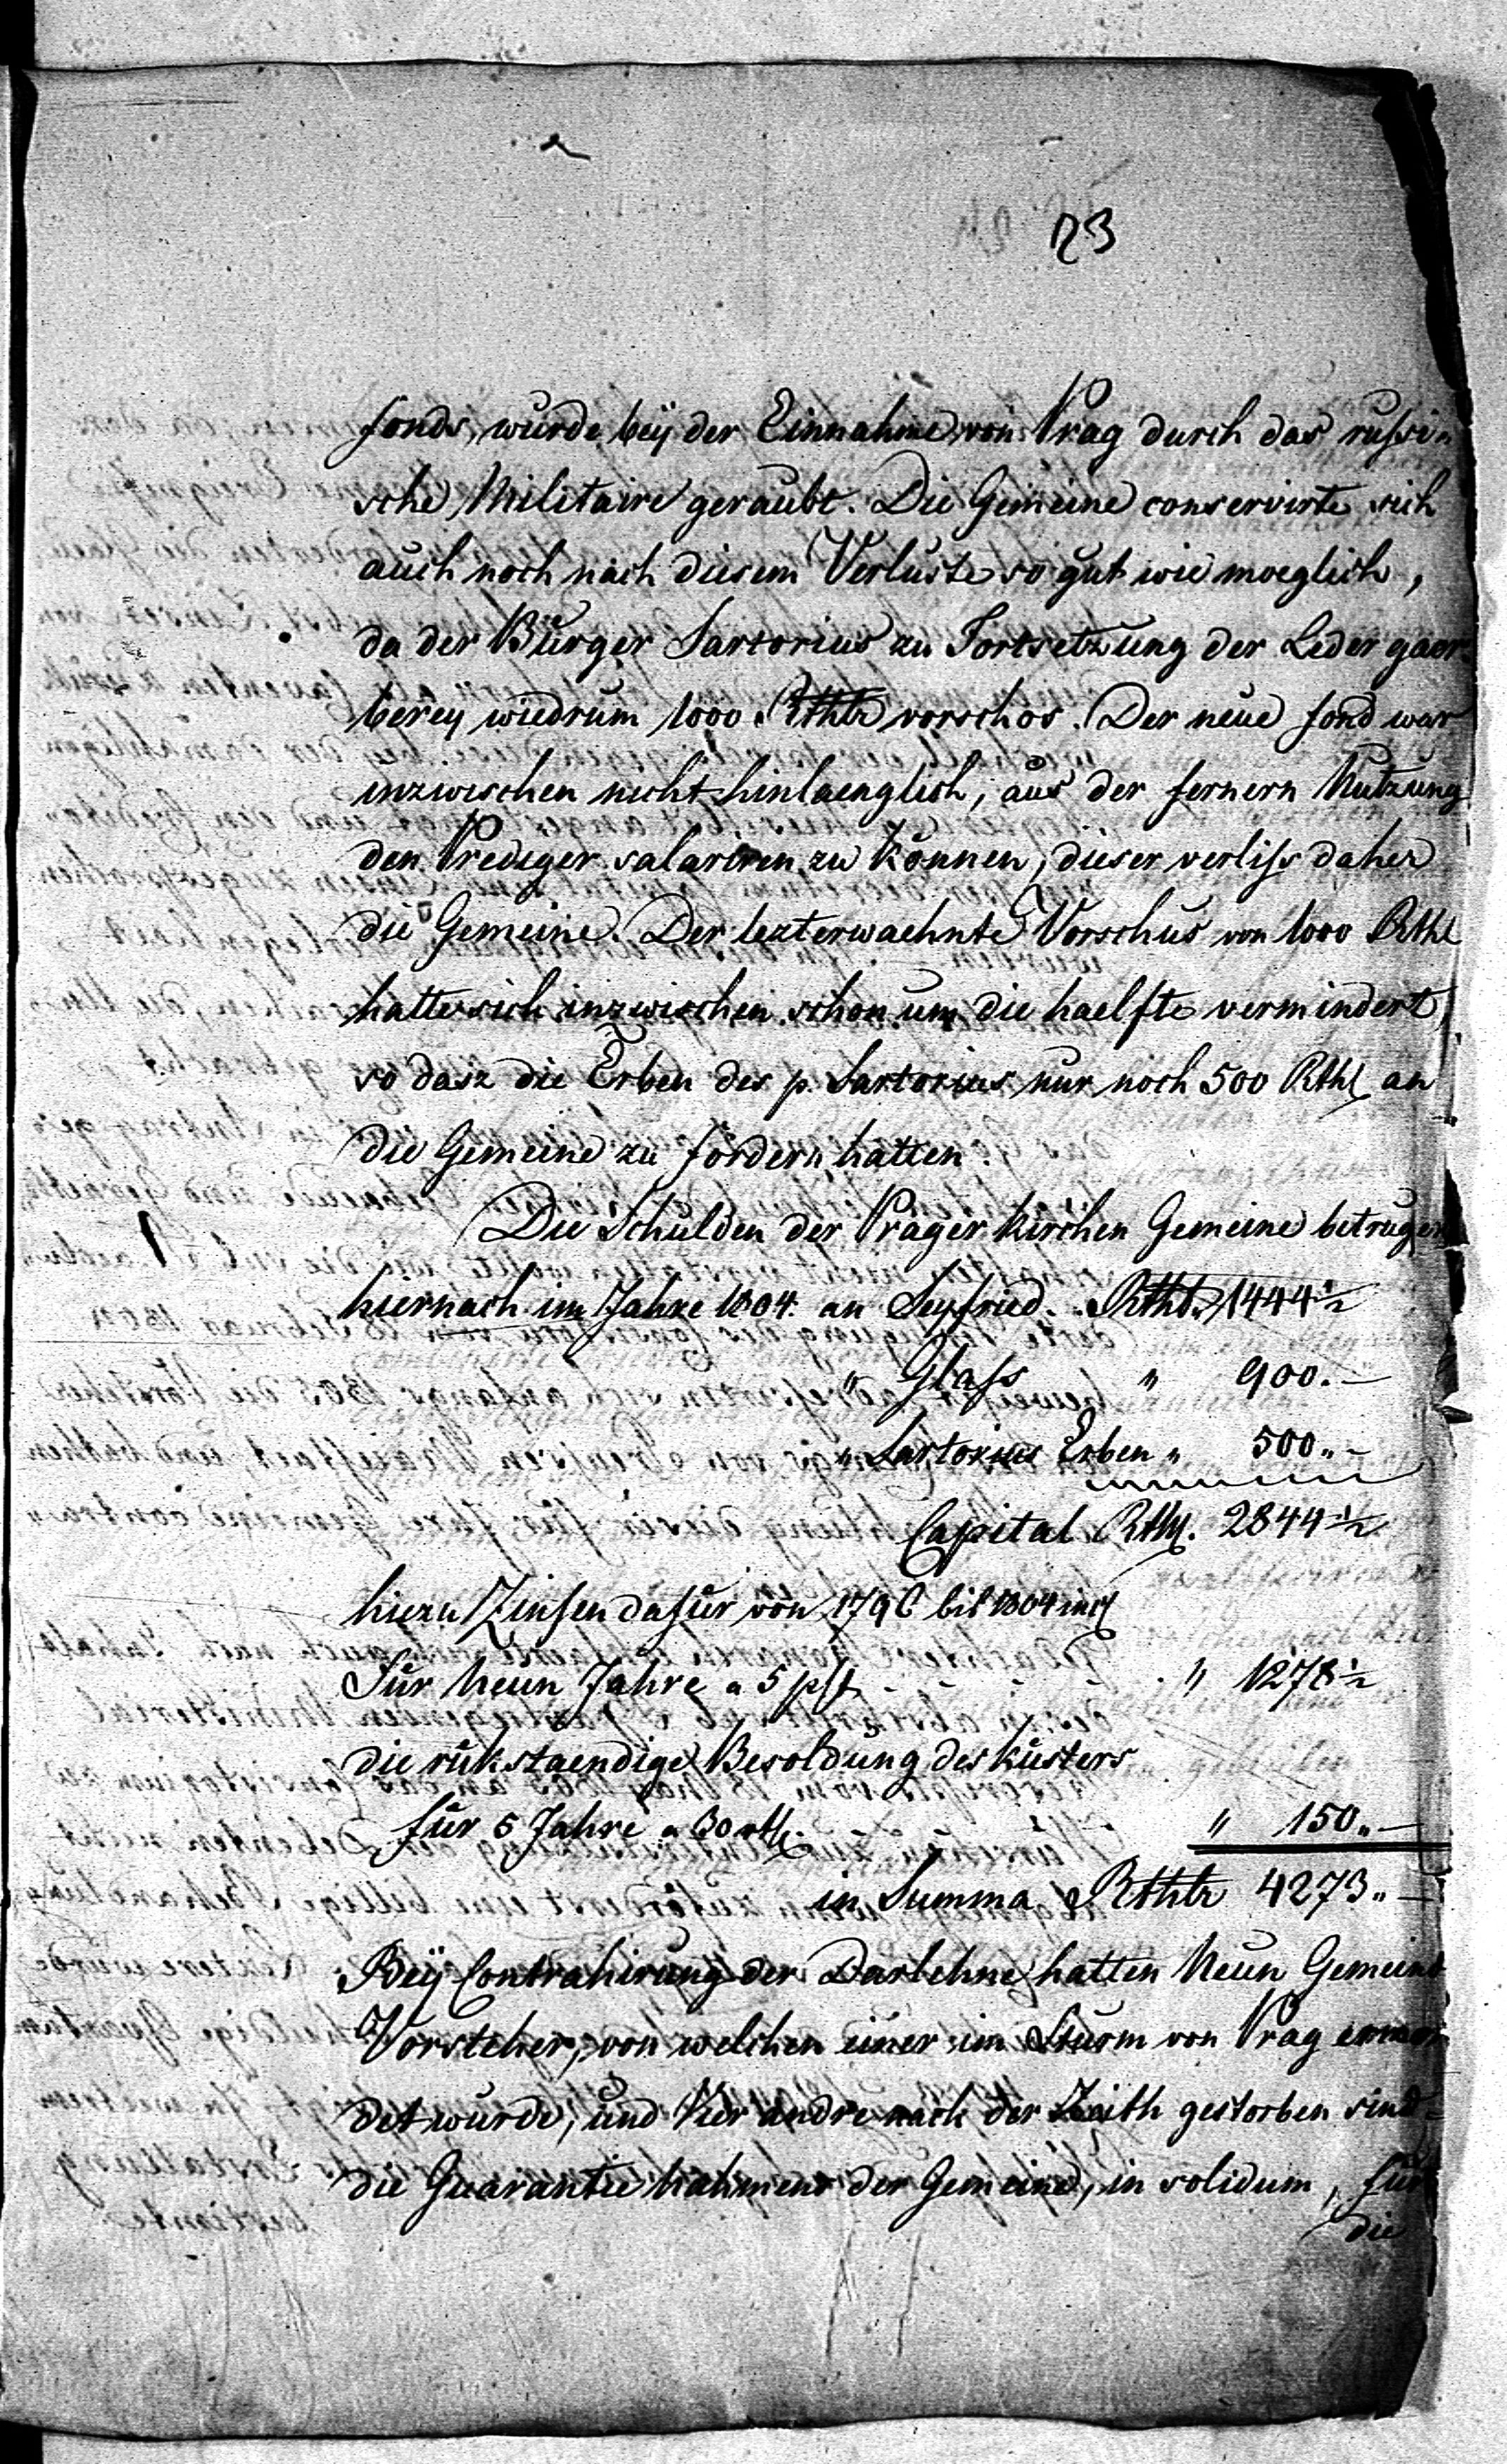 23
fonds, wurde beÿ der Einnahme von Prag durch das russi-
sche Militaire geraubt. Die Gemeine conservirte sich
auch noch nach diesem Verluste so gut wie moeglich,
da der Bürger Sartorius zu Fortsetzung der Leder gaer-
berey wiedrum 1000 Rthlr vorschos. Der neue fond war
inzwischen nicht hinlaenglich, aus der fernern Nutzung
den Prediger salariren zu können, dieser verliss daher
die Gemeine. Der lezterwaehnte Vorschus von 1000 Rthl
hatte sich inzwischen schon um die haelfte vermindert,
so dasz die Erben des p. Sartorius nur noch 500 Rthl an
die Gemeine zu fordern hatten.
Die Schulden der Prager Kirchen Gemeine betrugen
hiernach im Jahre 1804. an Seyfried. Rthl. 1444 1/2
" Glass " 900. —
" Sartorius Erben " 500 " —
Capital Rthl. 2844 1/2
hiezu Zinsen dafür von 1796 bis 1804 incl
Für Neun Jahre a 5 pCt - - - - " 1278 1/2
die rükstaendige Besoldung des Küsters
für 5 Jahre a 30 rtl. " 150 " —
in Summa Rthlr 4273 " —
Beÿ Contrahirung der Darlehne hatten Neun Gemeind
Vorsteher, von welchen einer im Sturm von Prag ermor
det wurde, und Vier andre nach der Zeith gestorben sind
die Guarantie Nahmens der Gemeine, in solidum, für
die